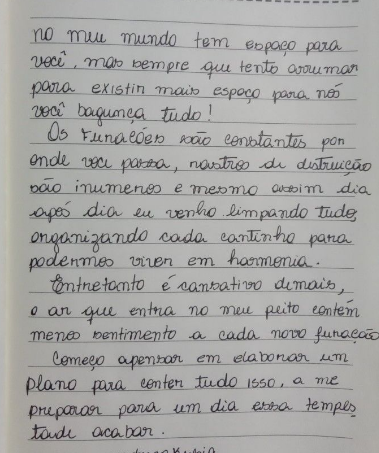 no meu mundo tem espaço para
você, mas sempre que tento arrumar
para existir mais espaço para nós
você bagunça tudo!
Os Furacões são constantes por
onde voce passa, rastros de distruição
são inumeros e mesmo assim dia
após dia eu venho limpando tudo,
organizando cada cantinho para
podermos viver em harmonia.
Entretanto é cansativo demais,
o ar que entra no meu peito contém
menos sentimento a cada novo furacão
Começo apensar em elaborar um
plano para conter tudo isso, a me
preparar para um dia essa tempes
tade acabar.